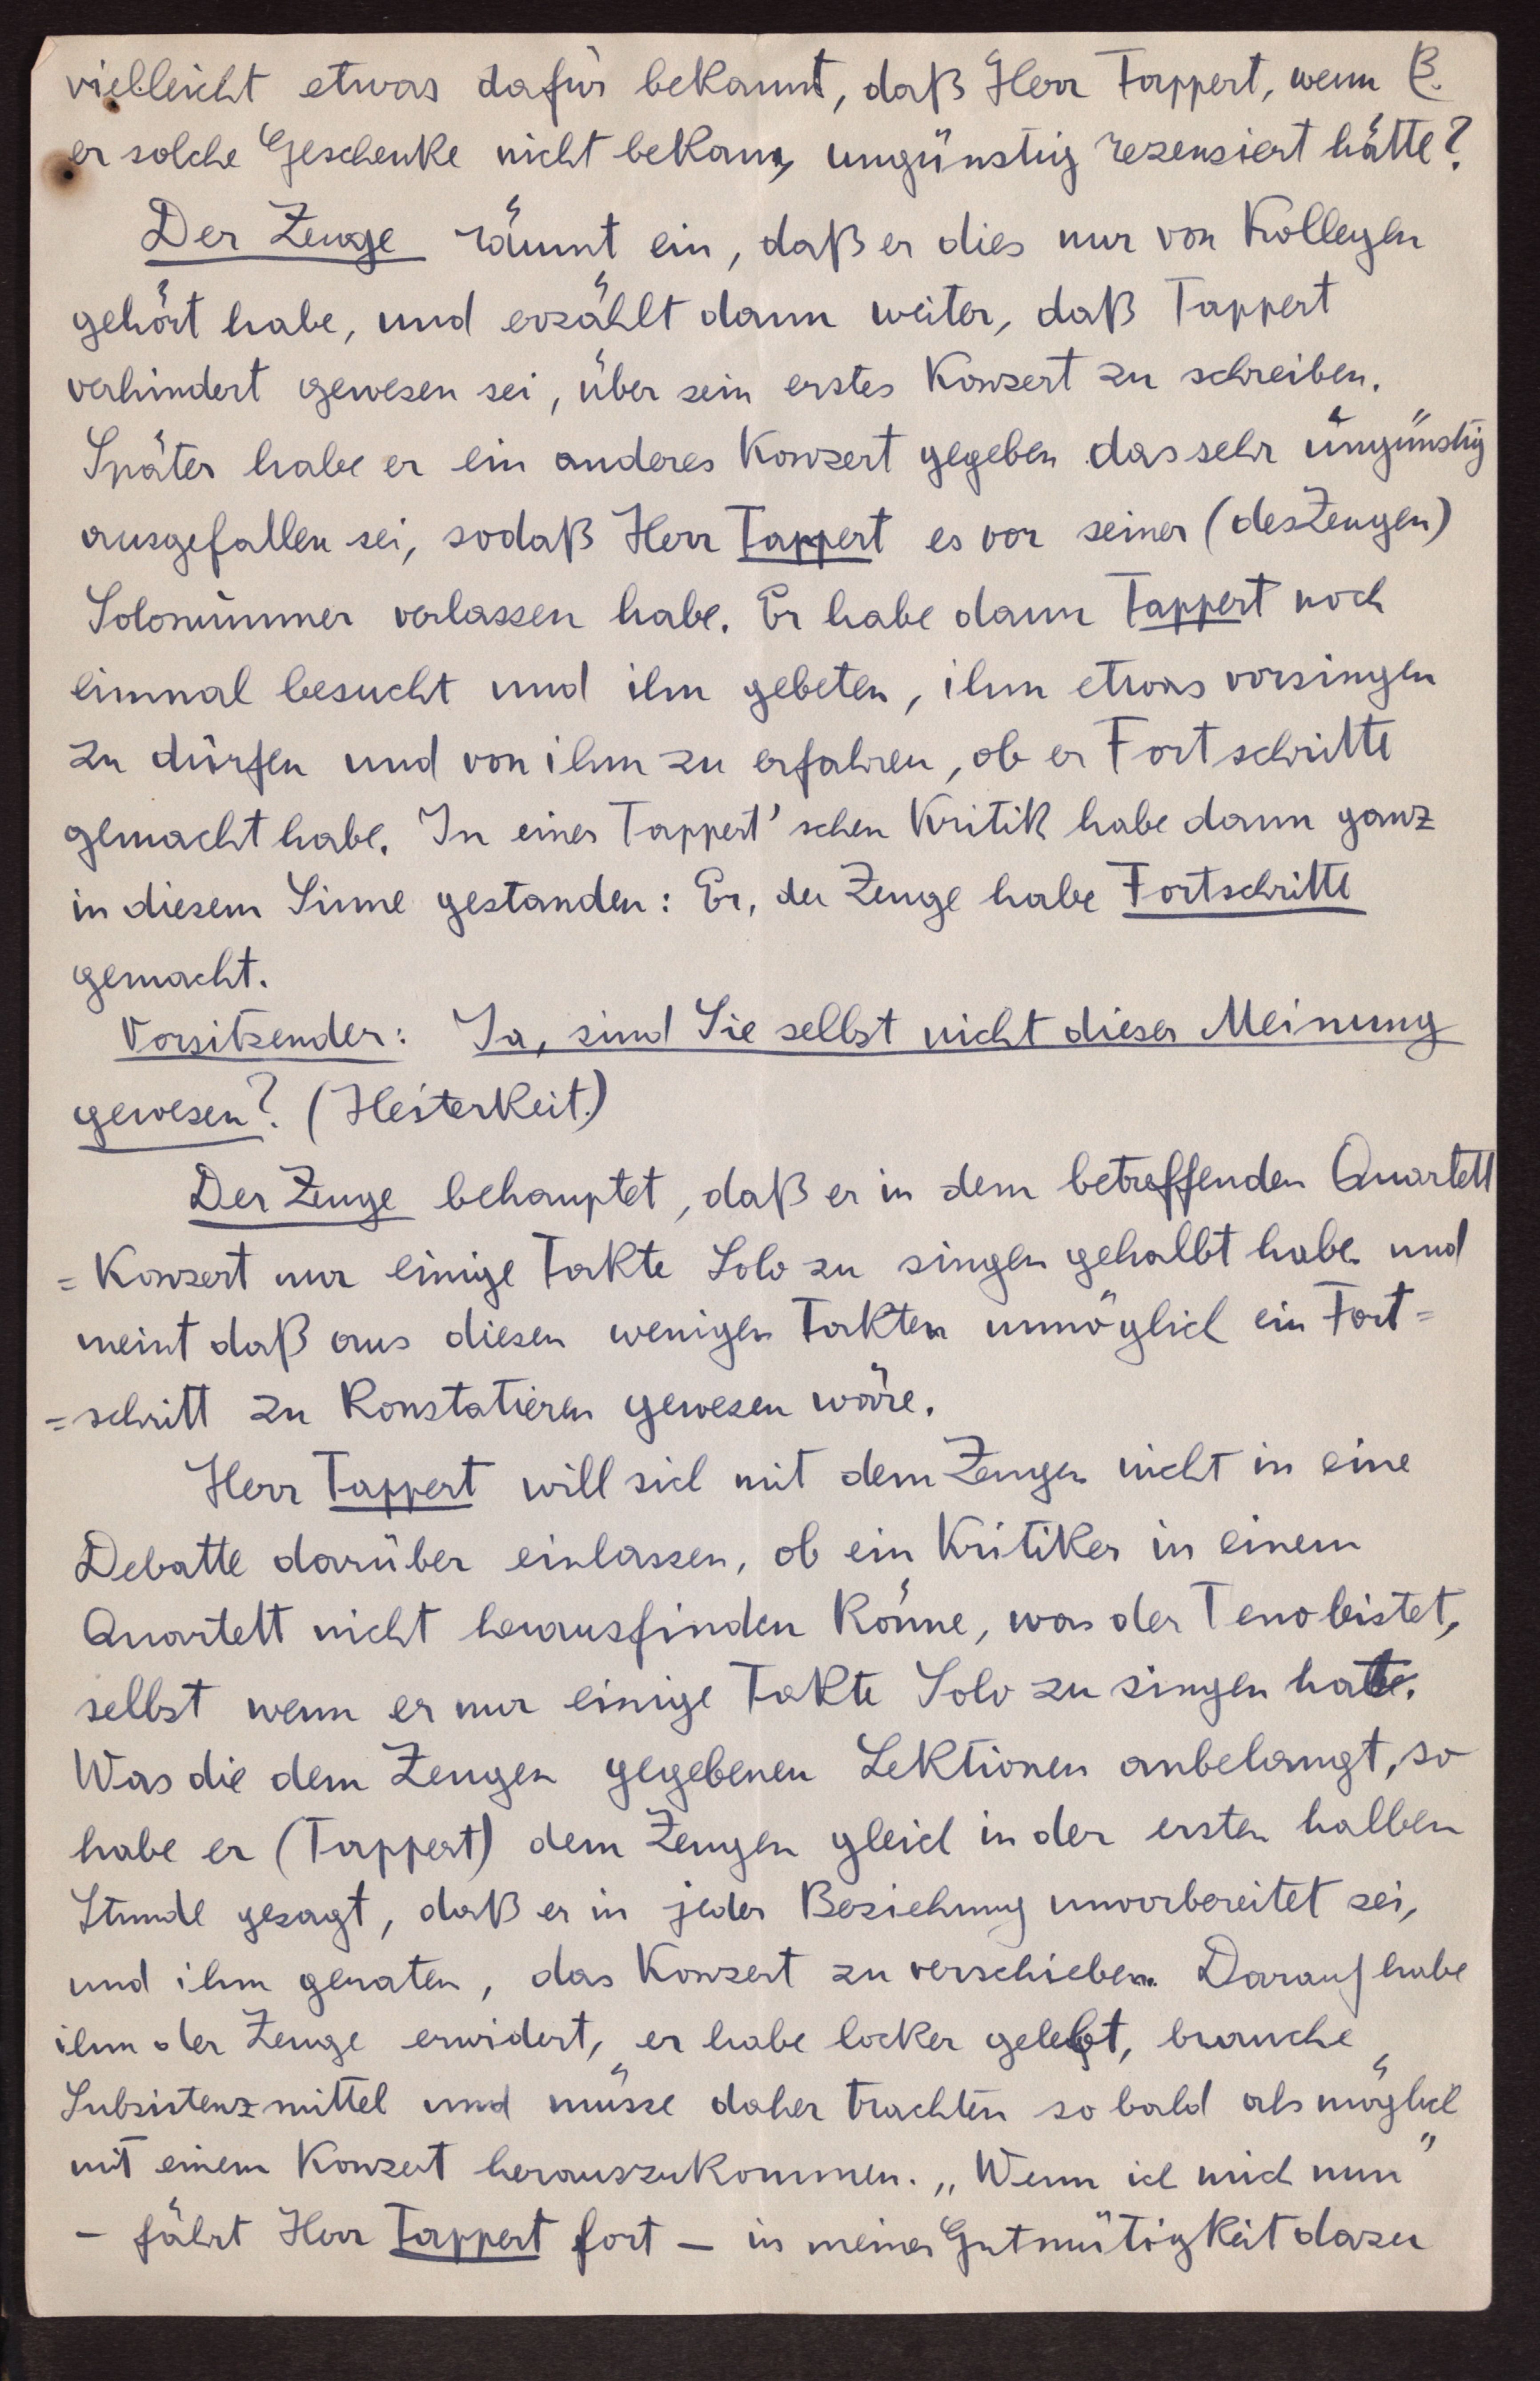 vielleicht etwas dafür bekannt, daß Herr Tappert, wenn B.
er solche Geschenke nicht bekam, ungünstig rezensiert hätte?
Der Zeuge räumt ein, daß er dies nur von Kollegen
gehört habe, und erzählt dann weiter, daß Tappert
verhindert gewesen sei, über sein erstes Konzert zu schreiben.
Später habe er ein anderes Konzert gegeben das sehr ungünstig
ausgefallen sei, sodaß Herr Tappert es vor seiner (des Zeugen)
Solonummer verlassen habe. Er habe dann Tappert noch
einmal besucht und ihn gebeten, ihm etwas vorsingen
zu dürfen und von ihm zu erfahren, ob er Fortschritte
gemacht habe. In einer Tappert'schen Kritik habe dann ganz
in diesem Sinne gestanden: Er, der Zeuge habe Fortschritte
gemacht.
Vorsitzender: Ja, sind Sie selbst nicht dieser Meinung
gewesen? (Heiterkeit.)
Der Zeuge behauptet, daß er in dem betreffenden Quartett
= Konzert nur einige Takte Solo zu singen gehabt habe und
meint daß aus diesen wenigen Takten unmöglich ein Fort=
=schritt zu konstatieren gewesen wäre.
Herr Tappert will sich mit dem Zeugen nicht in eine
Debatte darüber einlassen, ob ein Kritiker in einem
Quartett nicht herausfinden könne, was der Tenor leistet,
selbst wenn er nur einige Takte Solo zu singen hatte.
Was die dem Zeugen gegebenen Lektionen anbelangt, so
habe er (Tappert) dem Zeugen gleich in der ersten halben
Stunde gesagt, daß er in jeder Beziehung unvorbereitet sei,
und ihm geraten, das Konzert zu verschieben. Darauf habe
ihm der Zeuge erwidert, er habe locker gelebt, brauche
Subsistenzmittel und müsse daher trachten so bald als möglich
mit einem Konzert herauszukommen. „Wenn ich mich nun"
– fährt Herr Tappert fort – in meiner Gutmütigkeit dazu